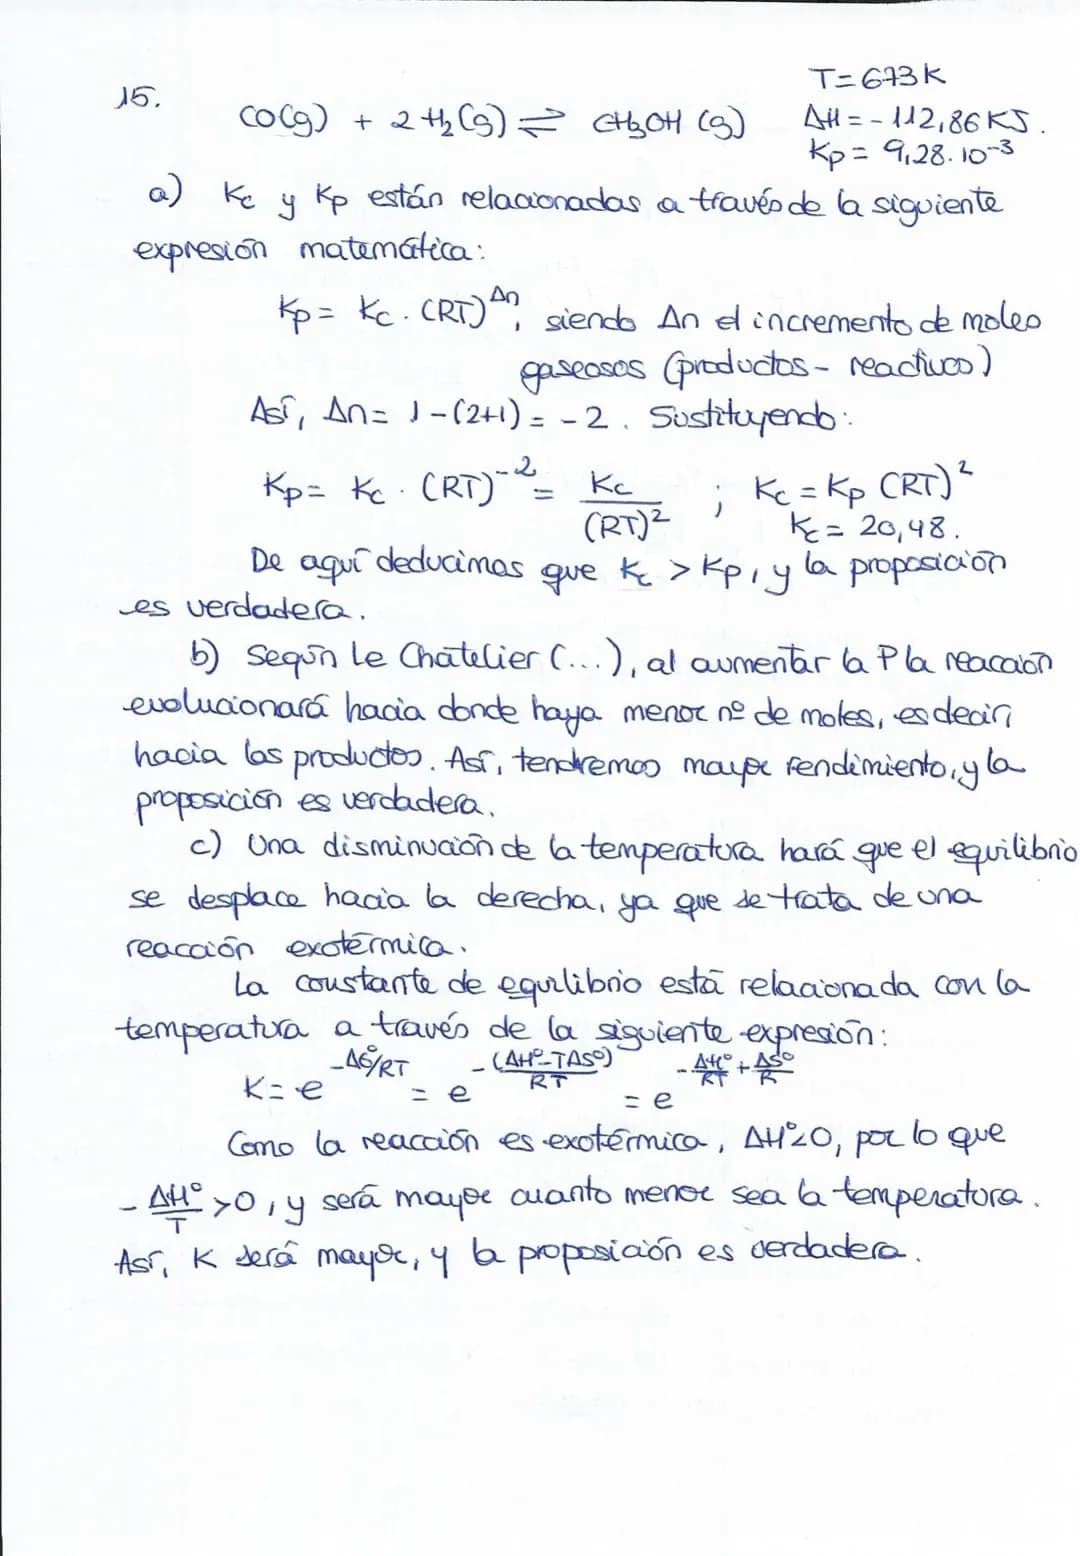 15.
T=673K
CO(g) + 2H₂(g) ⇌ CH₃OH (g)
ΔH = -112,86 KJ.
Kp = 9,28.10⁻³
a) Kc y Kp están relacionadas a través de la siguiente
expresión matemática:
Kp = Kc . (RT)^Δn, siendo Δn el incremento de moles
gaseosos (productos - reactivos)
Así, Δn = 1-(2+1) = -2. Sustituyendo:
Kp = Kc . (RT)⁻² = Kc/(RT)² ; Kc = Kp (RT)²
Kc = 20,48.
De aquí deducimos que Kc > Kp, y la proposición
es verdadera.
b) Según Le Chatelier (...), al aumentar la P la reacción
evolucionará hacia donde haya menor nº de moles, es decir,
hacia los productos. Así, tendremos mayor rendimiento, y la
proposición es verdadera.
c) Una disminución de la temperatura hará que el equilibrio
se desplace hacia la derecha, ya que se trata de una
reacción exotérmica.
La constante de equilibrio está relacionada con la
temperatura a través de la siguiente expresión:
K = e^(-ΔG°/RT) = e^(-(ΔH°-TΔS°)/RT) = e^(-ΔH°/RT + ΔS°/R)
Como la reacción es exotérmica, ΔH°<0, por lo que
-ΔH°/T >0, y será mayor cuanto menor sea la temperatura.
Así, K será mayor, y la proposición es verdadera.